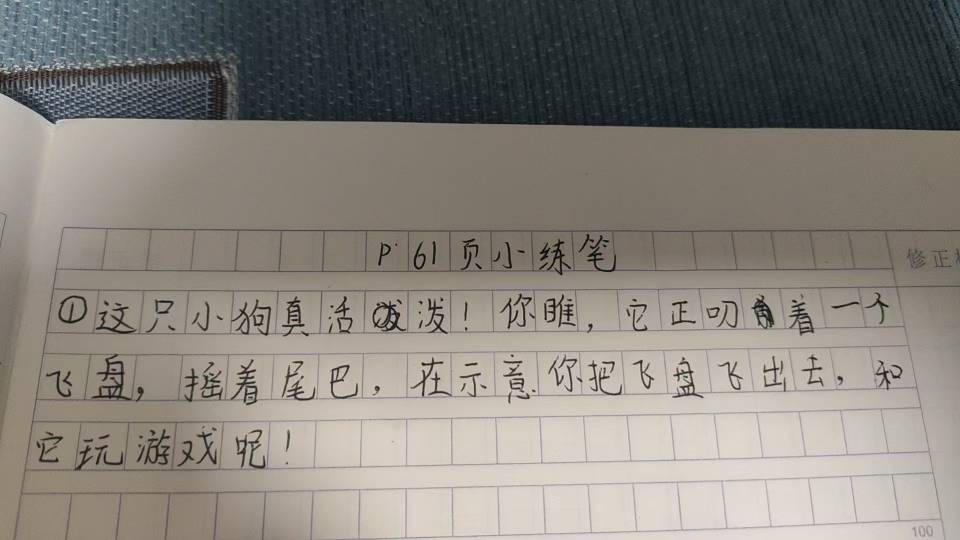 P61页小练笔
修正
①这只小狗真活泼！你瞧，它正叨着一个
飞盘，摇着尾巴，在示意你把飞盘飞出去，和
它玩游戏呢！
100